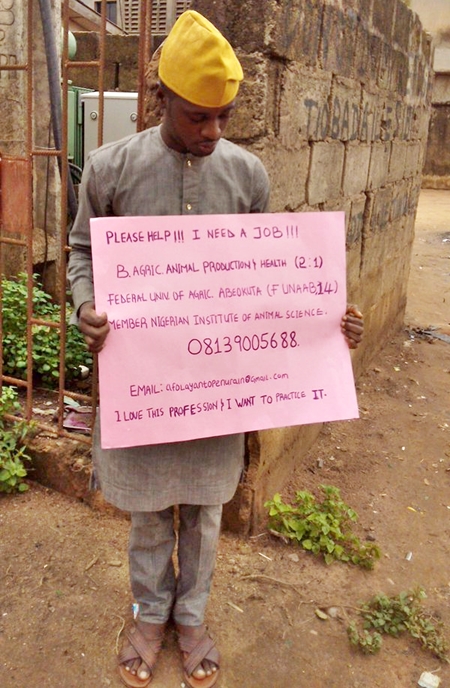 PLEASE HELP!!! I NEED A JOB!!!
B.AGRIC. ANIMAL PRODUCTION & HEALTH (2:1)
FEDERAL UNIV. OF AGRIC. ABEOKUTA (FUNAAB14)
MEMBER NIGERIAN INSTITUTE OF ANIMAL SCIENCE.
08139005688.
EMAIL: afolayantopenurain@gmail.com
I LOVE THIS PROFESSION & I WANT TO PRACTICE IT.